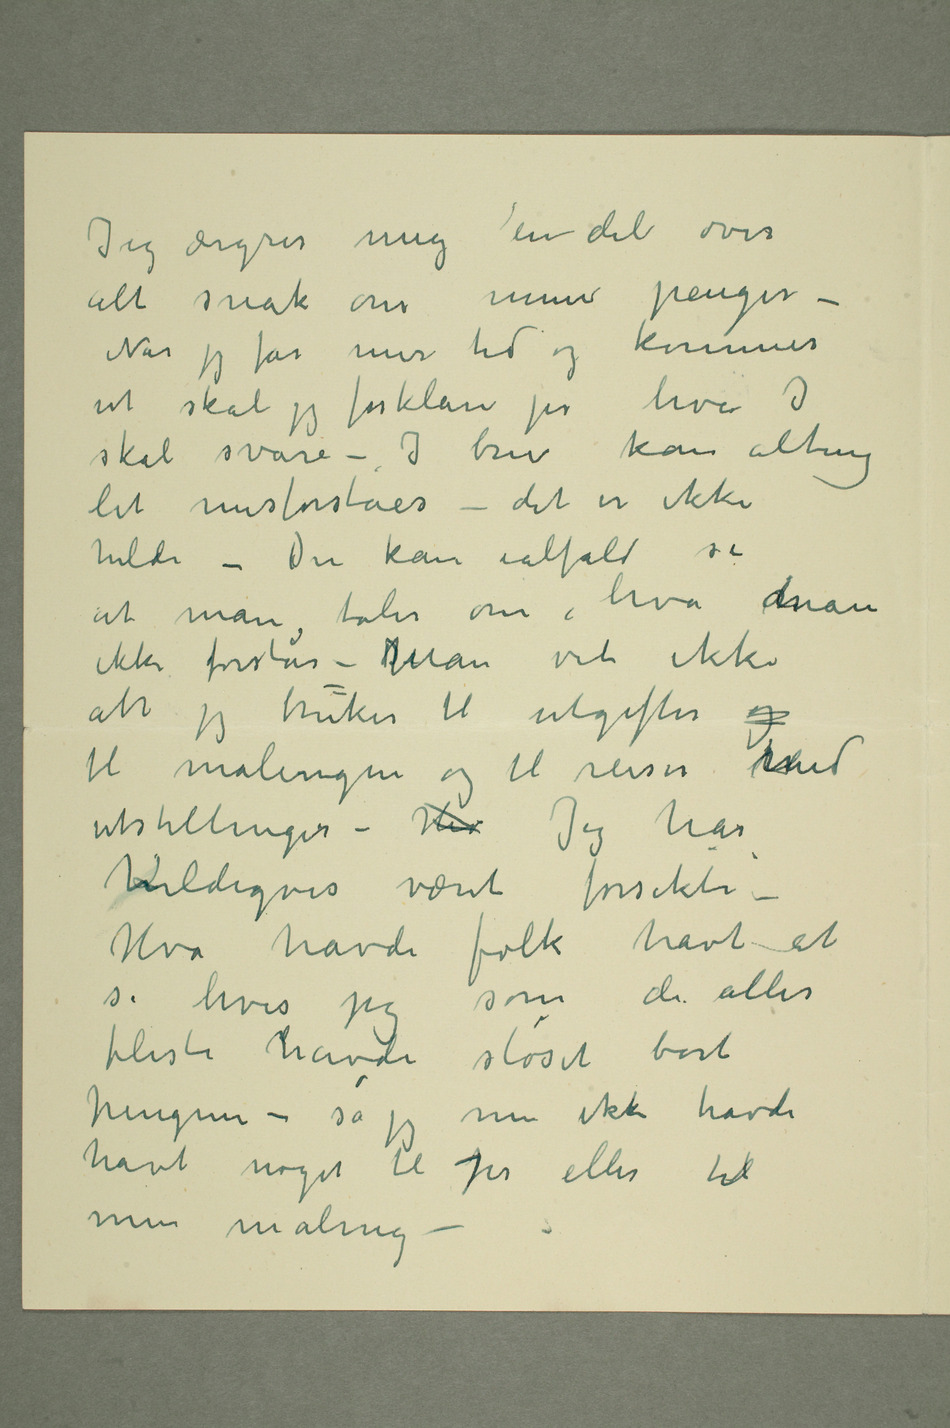 Jeg ærgrer mig en del over
alt snak om mine penger –
Når jeg får mer tid og kommer
ut skal jeg forklare jer hva I
skal svare – I brev kan alting
let misforståes – det er ikke
heldi – Du kan ialfald si
at man taler om, hva man
ikke forstår – Man vet ikke
att jeg bruker til utgifter og
til malingen og til reiser med
utstillinger – Her Jeg har
heldigvis været forsikti –
Hva havde folk havt at
si hvis jeg som de aller
fleste havde sløset bort
pengene – så jeg nu ikke havde
havt noget til jer eller til
min maling –